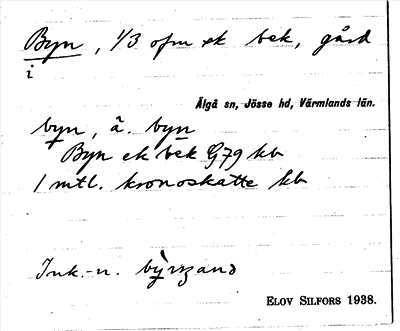 Byn, 1/3 ofm ek bek, gård
i
Älgå sn, Jösse hd, Värmlands län.
byn, ä. byn
Byn ek bek G79 kb
1 mtl. kronoskatte kb
Ink.-n.
ELOV SILFORS 1938.